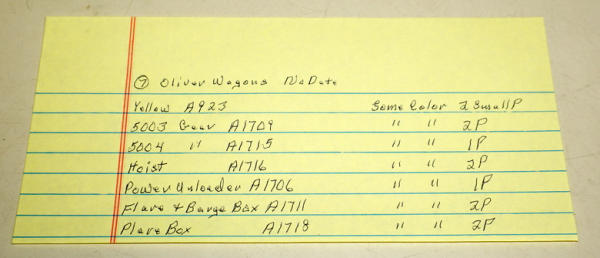 ⑦ Oliver Wagons No Date
Yellow A923 Same Color 2 Small P
5003 Gear A1709 " " 2P
5004 " A1715 " " 1P
Hoist A1716 " " 2P
Power Unloader A1706 " " 1P
Flare & Barge Box A1711 " " 2P
Flare Box A1718 " " 2P